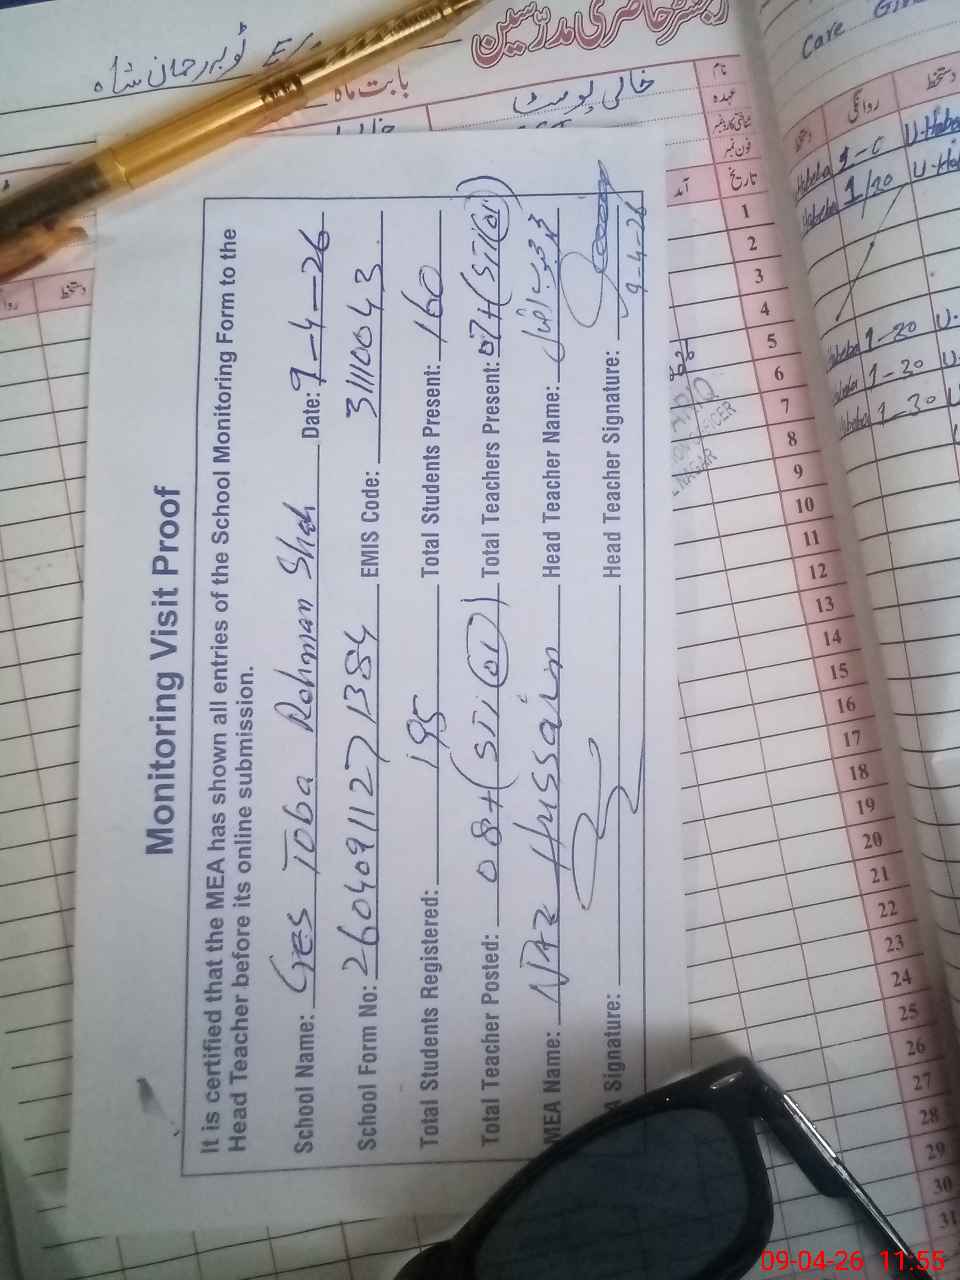 رجسٹر حاضری مدرسین
ٹوبہ رحمان شاہ
بابت ماہ
خالی پوسٹ
نام
عہدہ
شناختی کارڈ نمبر
فون نمبر
تاریخ
آمد
روانگی
دستخط
Care
Monitoring Visit Proof
It is certified that the MEA has shown all entries of the School Monitoring Form to the
Head Teacher before its online submission.
School Name: Ges Toba Rehman Shah Date: 9-4-26
School Form No: 2604091127 1384 EMIS Code: 31110043
Total Students Registered: 195 Total Students Present: 160
Total Teacher Posted: 08+(STI(01) Total Teachers Present: 07+(STI(01)
MEA Name: Niaz Hussain Head Teacher Name: محمد محبوب اقبال
Signature: Head Teacher Signature:
9-4-26
1
2
3
4
5
6
7
8
9
10
11
12
13
14
15
16
17
18
19
20
21
22
23
24
25
26
27
28
29
30
31
1-20
1-20
1-30
09-04-26 11:55